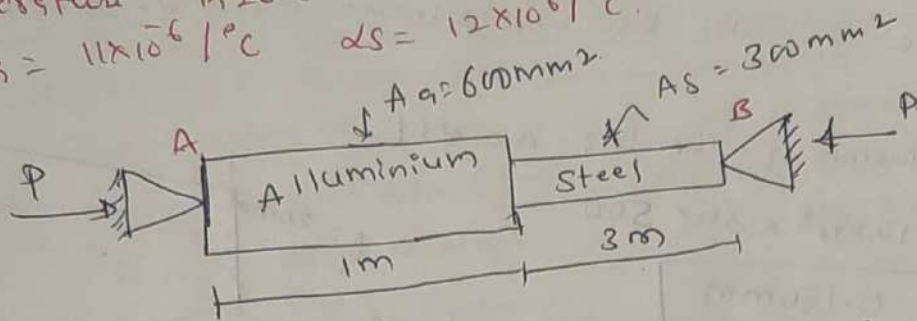 = 11×10⁻⁶ /°C αs = 12×10⁶ / °C.
Aa = 600mm²
As = 300mm²
A
B
P
P
Alluminium
Steel
1m
3m